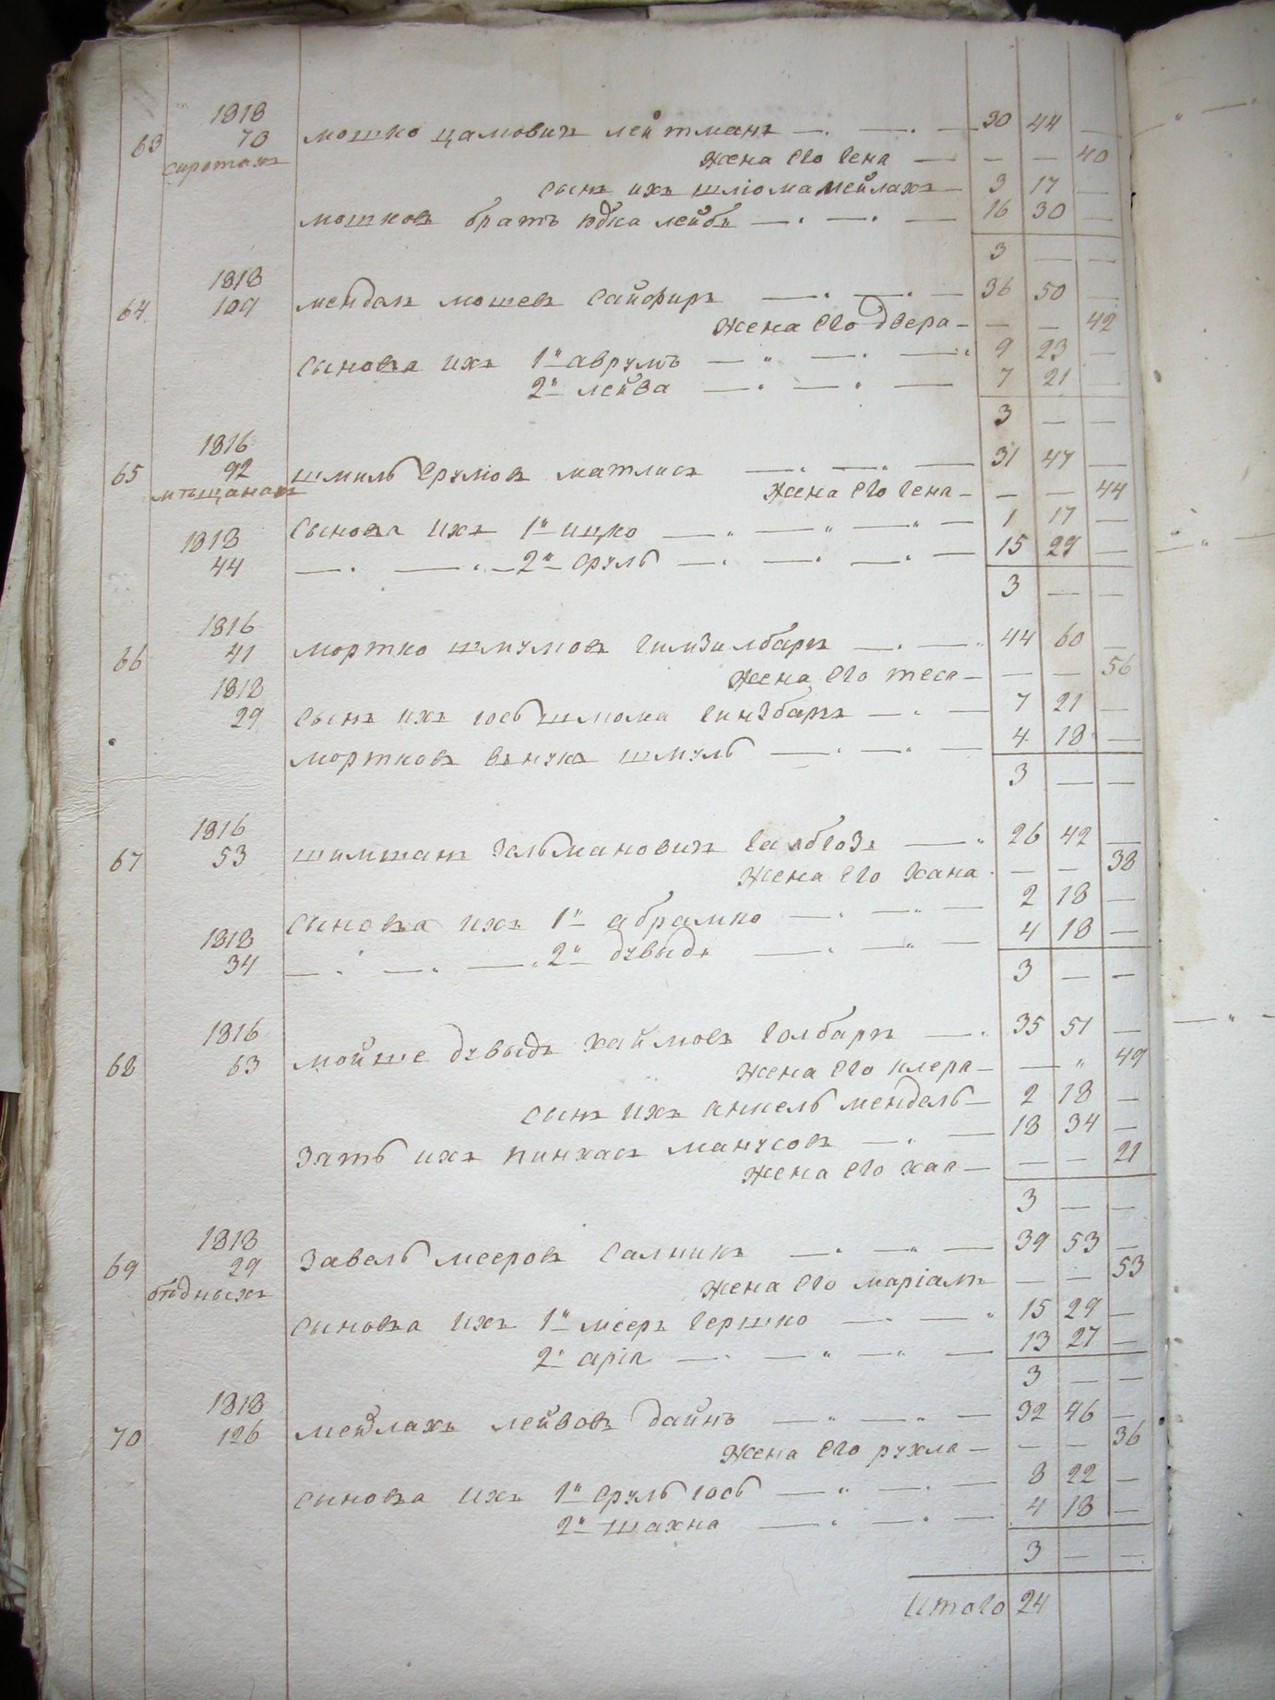 1818
63 70 мошко цамовичъ лейтманъ — 30 44 —
сиротахъ жена его гена — — — 40
сынъ ихъ шліома мейлахъ — 3 17 —
мошковъ братъ юдка лейбъ — 16 30 —
3 — —
1818
64 109 мендаль мошевъ сайфиръ — 36 50 —
жена его двера — — — 42
сыновья ихъ 1й аврумъ — 9 23 —
2й лейва — 7 21 —
3 — —
1816
65 92 шмиль срулiовъ матлисъ — 31 47 —
мъщанахъ жена его гена — — — 44
сыновья ихъ 1й ицко — 1 17 —
1818
44 — 2й сруль — 15 29 —
3 — —
1816
66 41 мортко шмуловъ гинзилбаръ — 44 60 —
жена его теса — — — 56
1818
29 сынъ ихъ іось шліома гинзбаръ — 7 21 —
мортковъ внукъ шмуль — 4 18 —
3 — —
1816
67 53 шимшанъ зальмановичъ — 26 42 —
жена его хана — — 38
сыновья ихъ 1й абрамко — 2 18 —
1818
34 — 2й дувыдъ — 4 18 —
3 — —
1816
68 63 мойше дувыдъ хаймовъ голбаръ — 35 51 —
жена его клера — — " 49
сынъ ихъ анкель мендаль — 2 18 —
зять ихъ пинхасъ манусовъ — 18 34 —
жена его хая — — — 21
3 — —
1818
69 29 завель мееровъ салникъ — 39 53 —
бѣдныхъ жена его маріамъ — — 53
сыновья ихъ 1й мееръ гершко — 15 29 —
2й аріа — 13 27 —
3 — —
1818
70 126 мейлахъ лейвовъ дайнъ — 32 46 —
жена его рухля — — — 36
сыновья ихъ 1й сруль іось — 8 22 —
2й шахна — 4 18 —
3 — —
Итого 24